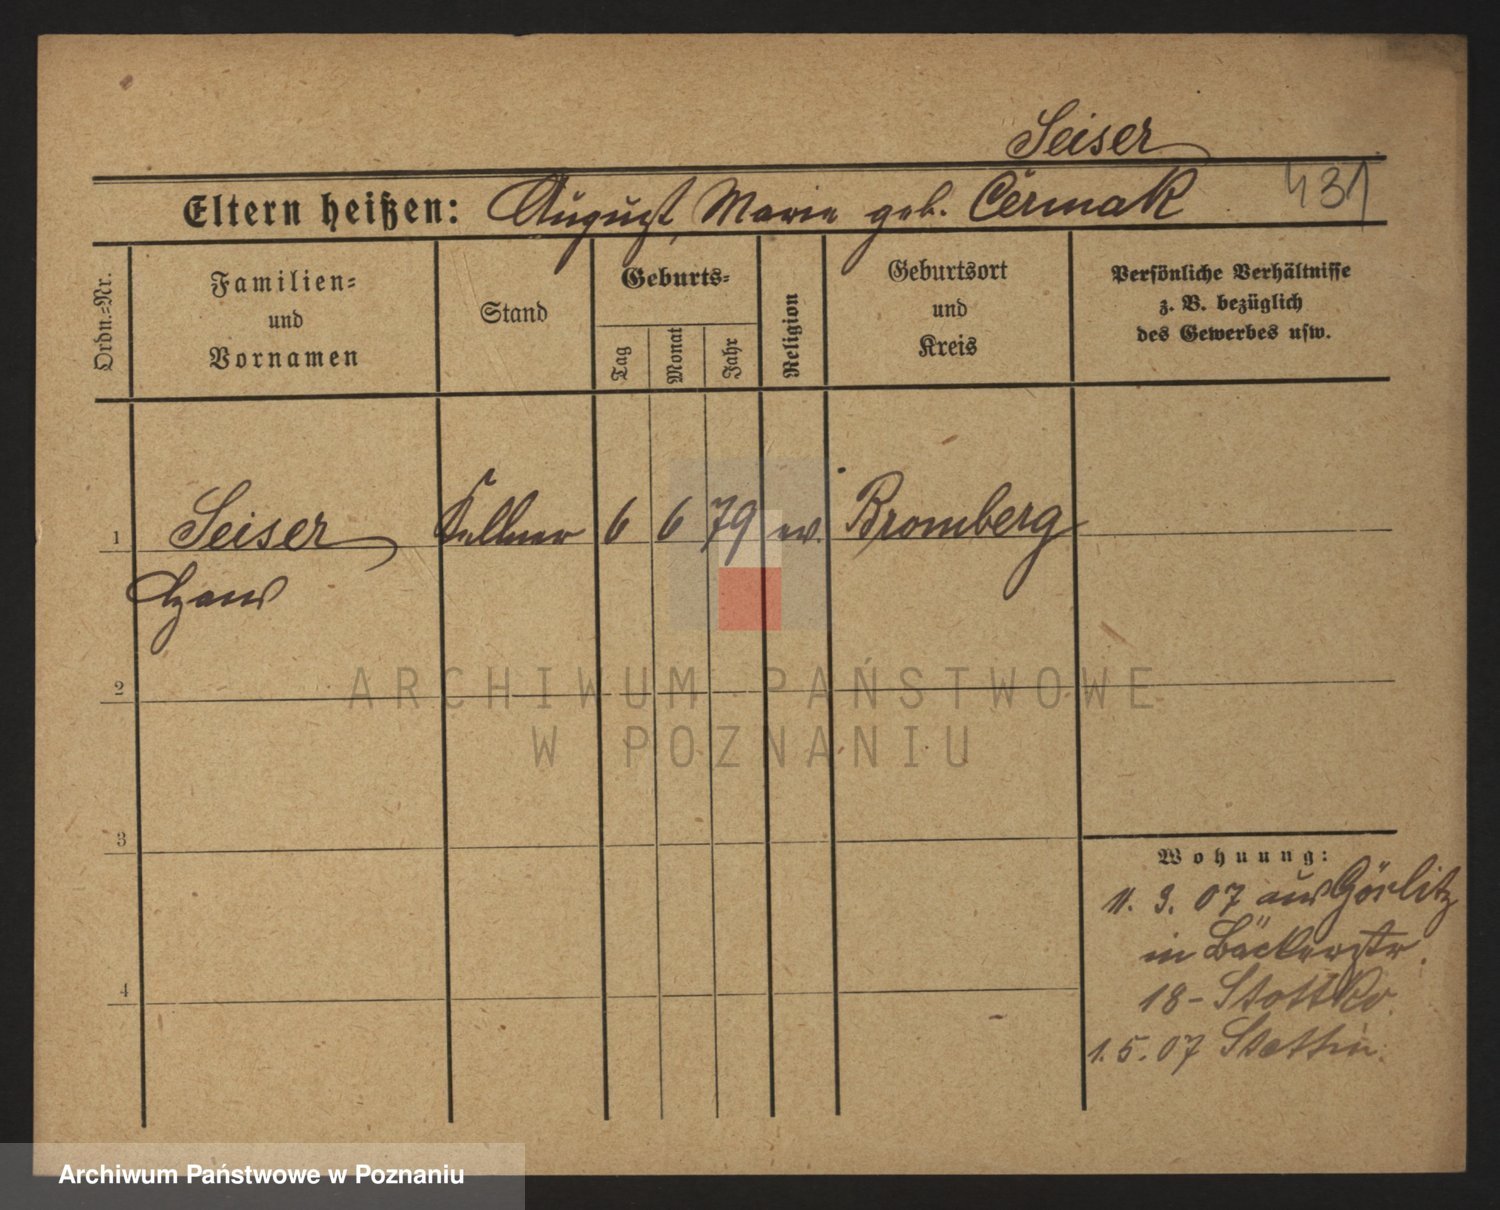 Seiser
Eltern heißen: August, Marie geb. Cermak 431
Ordn.=Nr.
Familien=
und
Vornamen
Stand
Geburts=
Tag
Monat
Jahr
Religion
Geburtsort
und
Kreis
Persönliche Verhältnisse
z. B. bezüglich
des Gewerbes usw.
1 Seiser Kellner 6 6 79 ev. Bromberg
Hans
2
3
4
Wohnung:
11. 3. 07 aus Görlitz
in Bäckerstr.
18 -
1. 5. 07 Stettin.
ARCHIWUM PAŃSTWOWE
W POZNANIU
Archiwum Państwowe w Poznaniu